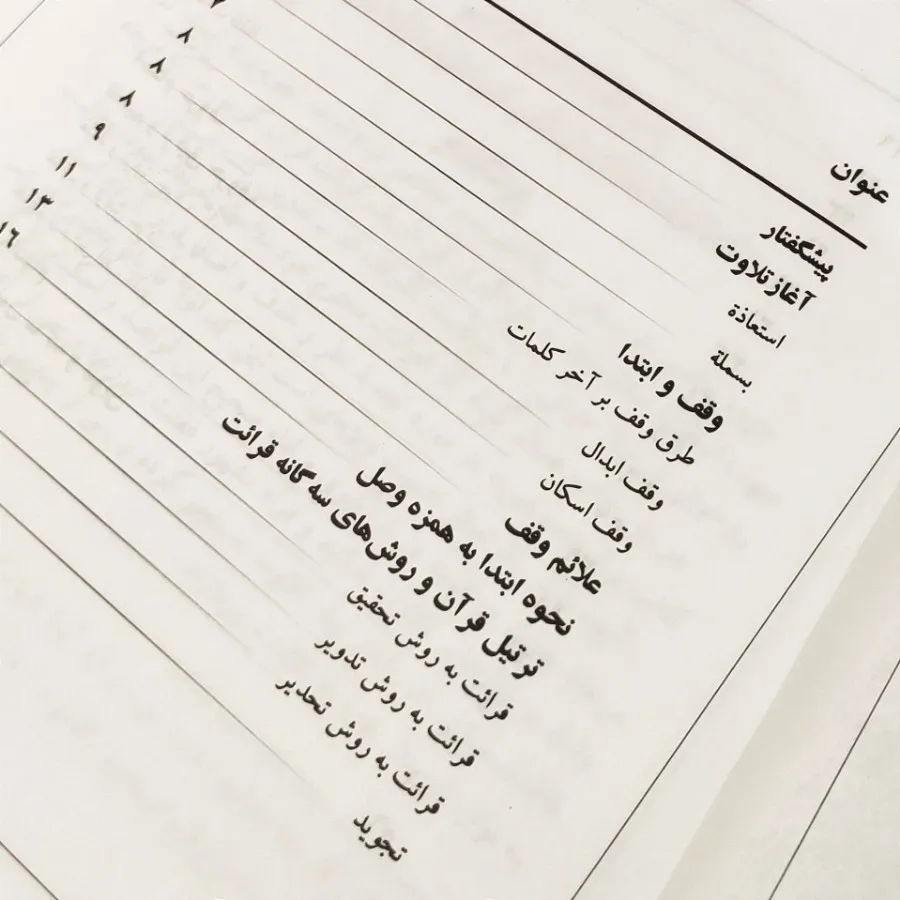 عنوان
پیشگفتار
آغاز تلاوت
استعاذة
بسملة
وقف و ابتدا
طرق وقف بر آخر کلمات
وقف ابدال
وقف اسکان
علائم وقف
نحوه ابتدا به همزه وصل
ترتیل قرآن و روش‌های سه گانه قرائت
قرائت به روش تحقیق
قرائت به روش تدویر
قرائت به روش تحدیر
تجوید
۸
۸
۸
۹
۱۱
۱۳
۱۶